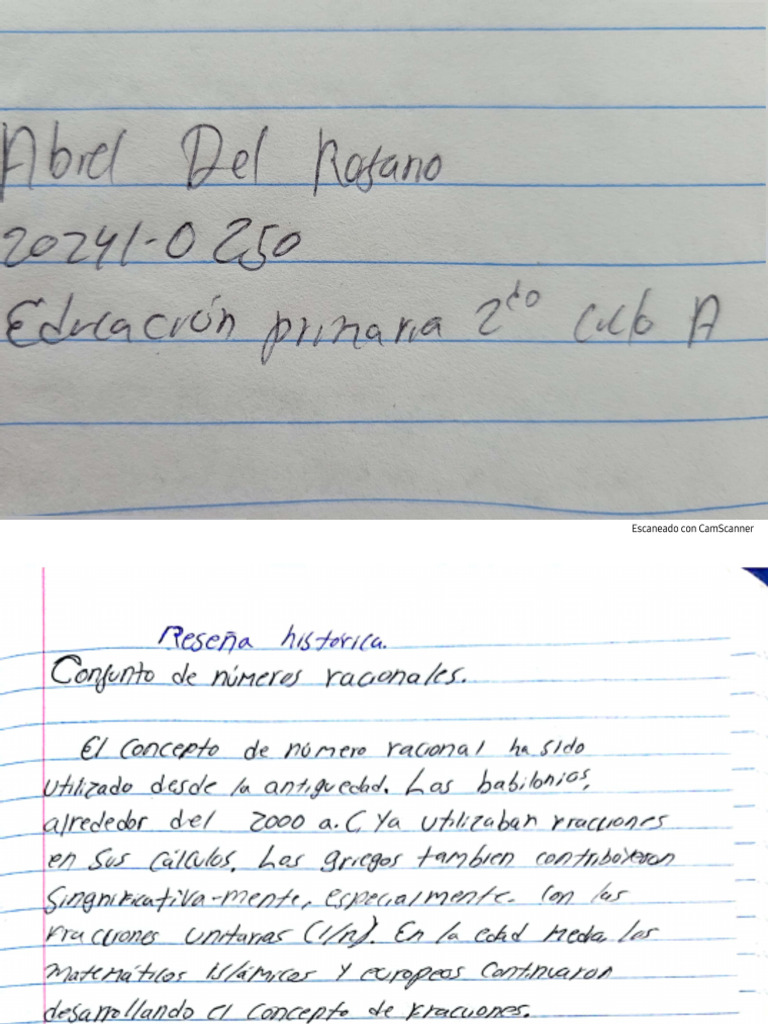 Abrel Del Rosario
20241-0250
Educación primaria 2do Ciclo A
Escaneado con CamScanner
Reseña histórica.
Conjunto de números racionales.
El concepto de número racional ha sido
utilizado desde la antiguedad. Los babilonios,
alrededor del 2000 a.C, Ya utilizaban fracciones
en sus cálculos. Los griegos tambien contriboyeron
singnificativa-mente, especialmente. con las
fracciones unitarias (1/n). En la edad media los
matemáticos islámicos y europeos continuaron
desarrollando el concepto de fracciones.